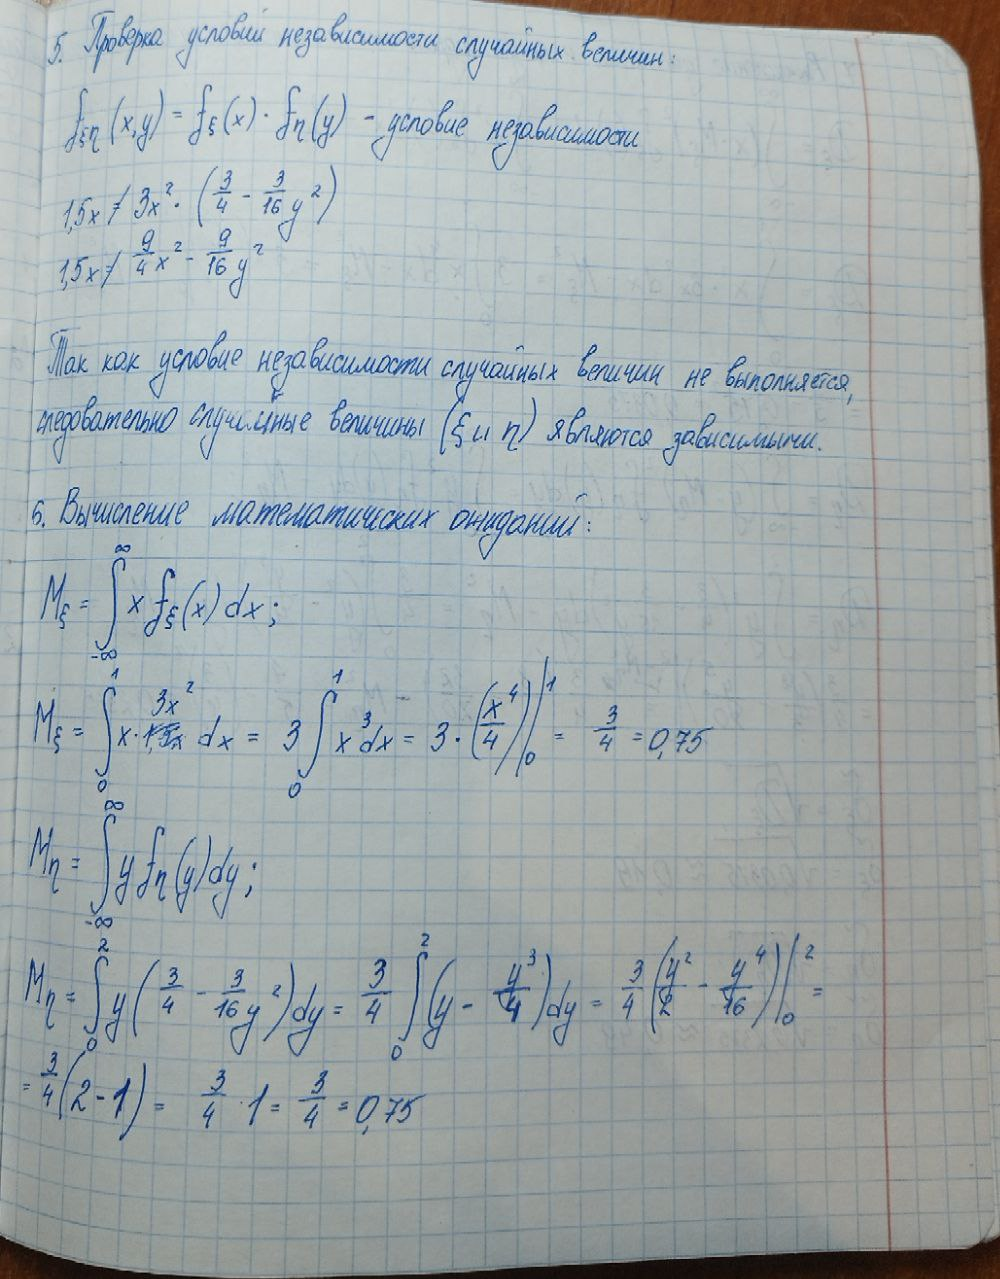 5. Проверка условий независимости случайных величин:
fξη(x,y) = fξ(x) · fη(y) - условие независимости
1,5x ≠ 3x² · (3/4 - 3/16 y²)
1,5x ≠ 9/4 x² - 9/16 y²
Так как условие независимости случайных величин не выполняется,
следовательно случайные величины (ξ и η) являются зависимыми.
6. Вычисление математических ожиданий:
Mξ = ∫_{-∞}^{∞} x fξ(x) dx;
Mξ = ∫_0^1 x · 3x² dx = 3 ∫_0^1 x³ dx = 3 · (x⁴/4)|_0^1 = 3/4 = 0,75
Mη = ∫_{-∞}^{∞} y fη(y) dy;
Mη = ∫_0^2 y (3/4 - 3/16 y²) dy = 3/4 ∫_0^2 (y - y³/4) dy = 3/4 (y²/2 - y⁴/16)|_0^2 =
= 3/4 (2 - 1) = 3/4 · 1 = 3/4 = 0,75